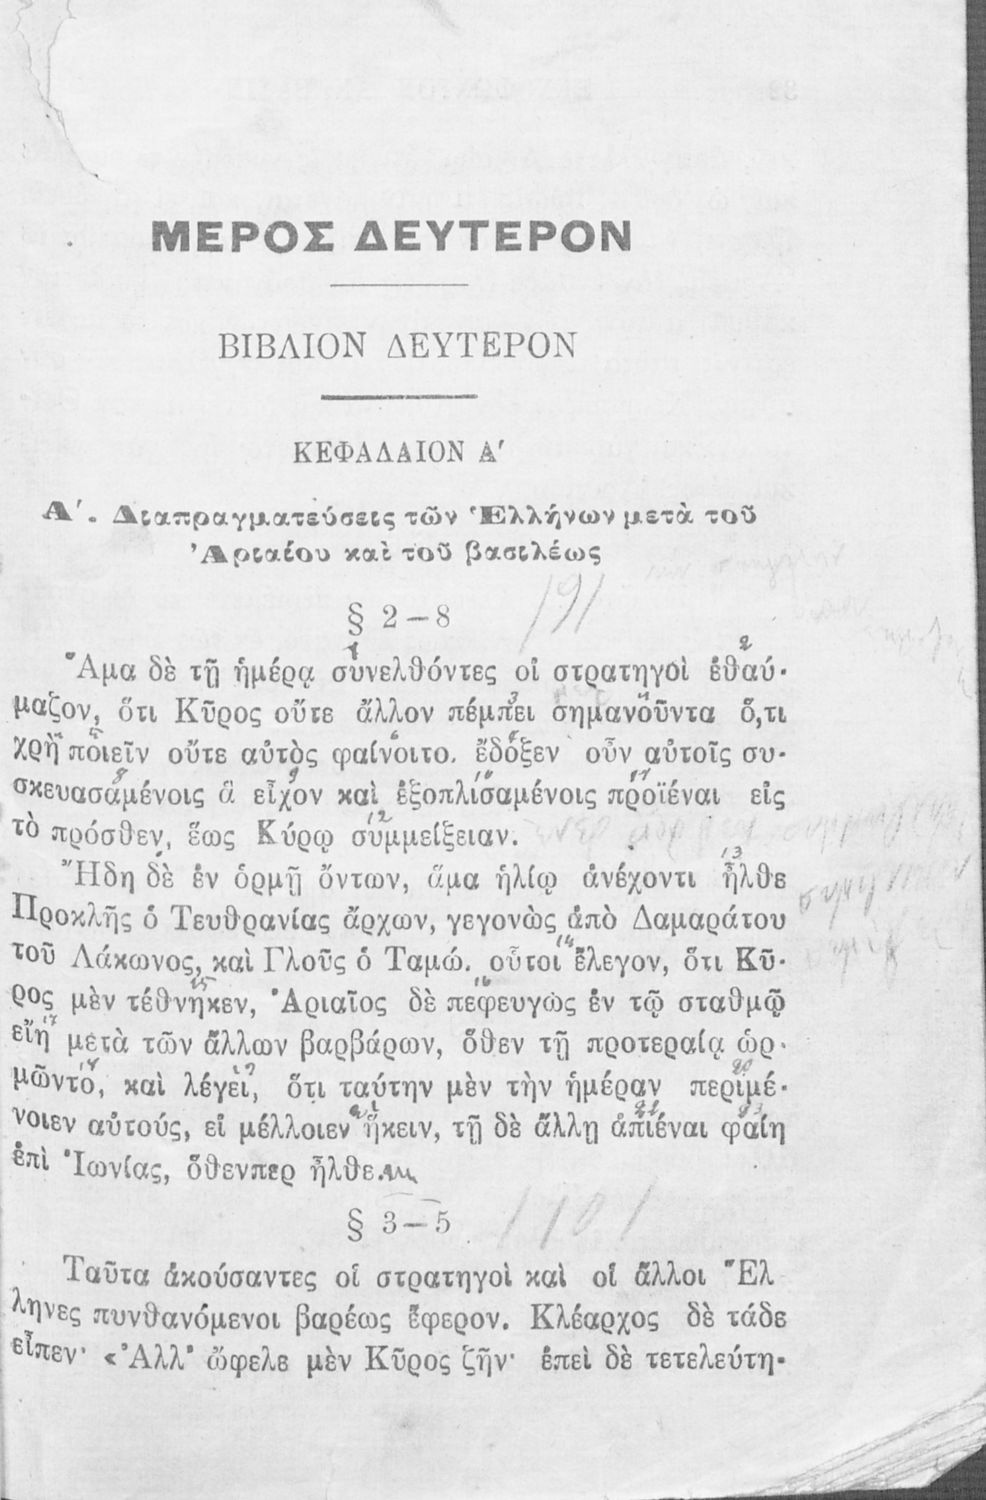 ΜΕΡΟΣ ΔΕΥΤΕΡΟΝ
ΒΙΒΛΙΟΝ ΔΕΥΤΕΡΟΝ
ΚΕΦΑΛΑΙΟΝ Α′
Α′. Διαπραγματεύσεις τῶν Ἑλλήνων μετὰ τοῦ
Ἀριαίου καὶ τοῦ βασιλέως
§ 2–8
Ἅμα δὲ τῇ ἡμέρᾳ συνελθόντες οἱ στρατηγοὶ ἐθαύ-
μαζον, ὅτι Κῦρος οὔτε ἄλλον πέμπει σημανοῦντα ὅ,τι
χρὴ ποιεῖν οὔτε αὐτὸς φαίνοιτο. ἔδοξεν οὖν αὐτοῖς συ-
σκευασαμένοις ἃ εἶχον καὶ ἐξοπλισαμένοις προϊέναι εἰς
τὸ πρόσθεν, ἕως Κύρῳ συμμείξειαν.
Ἤδη δὲ ἐν ὁρμῇ ὄντων, ἅμα ἡλίῳ ἀνέχοντι ἦλθε
Προκλῆς ὁ Τευθρανίας ἄρχων, γεγονὼς ἀπὸ Δαμαράτου
τοῦ Λάκωνος, καὶ Γλοῦς ὁ Ταμώ. οὗτοι ἔλεγον, ὅτι Κῦ-
ρος μὲν τέθνηκεν, Ἀριαῖος δὲ πεφευγὼς ἐν τῷ σταθμῷ
εἴη μετὰ τῶν ἄλλων βαρβάρων, ὅθεν τῇ προτεραίᾳ ὡρ-
μῶντο, καὶ λέγει, ὅτι ταύτην μὲν τὴν ἡμέραν περιμέ-
νοιεν αὐτούς, εἰ μέλλοιεν ἥκειν, τῇ δὲ ἄλλῃ ἀπιέναι φαίη
ἐπὶ Ἰωνίας, ὅθενπερ ἦλθε.
§ 3–5
Ταῦτα ἀκούσαντες οἱ στρατηγοὶ καὶ οἱ ἄλλοι Ἕλ
ληνες πυνθανόμενοι βαρέως ἔφερον. Κλέαρχος δὲ τάδε
εἶπεν· «Ἀλλ' ὤφελε μὲν Κῦρος ζῆν· ἐπεὶ δὲ τετελεύτη-